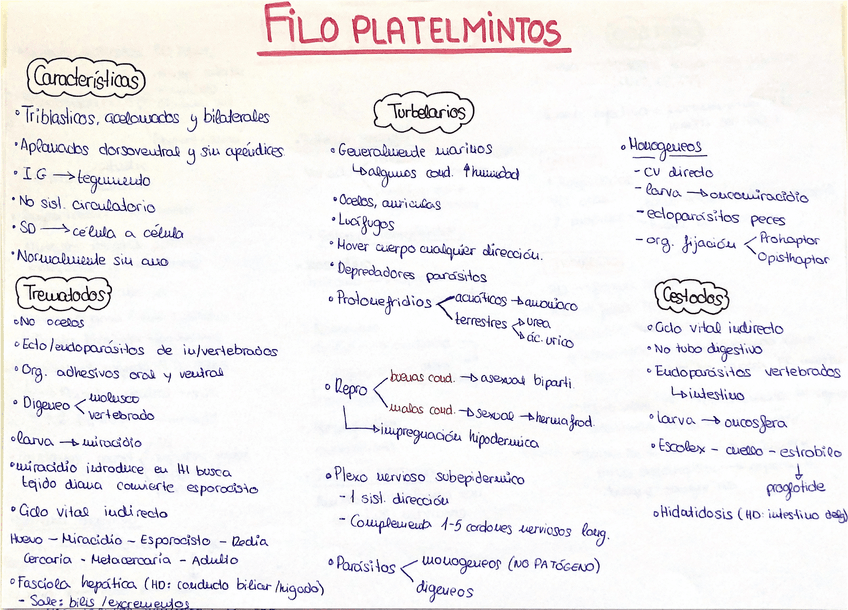 FILO PLATELMINTOS
Características
• Triblasticos, acelomados y bilaterales
• Aplanados dorsoventral y sin apéndices
• I.G → tegumento
• No sist. circulatorio
• SD → célula a célula
• Normalmente sin ano
Trematodos
• No ocelos
• Ecto/endoparásitos de in/vertebrados
• Org. adhesivos oral y ventral
• Digeneo < molusco
vertebrado
• larva → miracidio
• miracidio introduce en HI busca
tejido diana convierte esporocisto
• Ciclo vital indirecto
Huevo - Miracidio - Esporocisto - Redia
Cercaria - Metacercaria - Adulto
• Fasciola hepática (HD: conducto biliar/hígado)
- Sale: bilis/excrementos
Turbelarios
• Generalmente marinos
↳ algunos cond. ↑ humedad
• Ocelos, auriculas
• Lucífugos
• Mover cuerpo cualquier dirección.
• Depredadores parásitos
• Protonefridios < acuáticos → amoniaco
terrestres → urea
→ ác. urico
• Repro < buenas cond. → asexual biparti.
malas cond. → sexual → hermafrod.
→ impregnación hipodermica
• Plexo nervioso subepidermico
- 1 sist. dirección
- Complementa 1-5 cordones nerviosos long.
• Parásitos < monogeneos (NO PATÓGENO)
digeneos
• Monogeneos
- CV directo
- larva → oncomiracidio
- ectoparásitos peces
- org. fijación < Prohaptor
Opisthaptor
Cestodos
• Ciclo vital indirecto
• No tubo digestivo
• Endoparásitos vertebrados
↳ intestino
• larva → oncosfera
• Escolex - cuello - estrobilo
↓
proglotide
• Hidatidosis (HD: intestino delg)